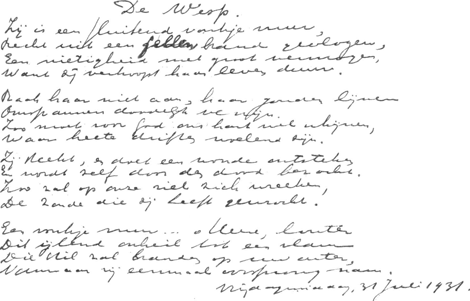 De Wesp.
Zij is een fluitend vonkje vuur,
Recht uit een fellen brand gevlogen,
Een nietigheid met groot vermogen,
Want zij verkoopt haar leven duur.
Raak haar niet aan, haar gouden lijnen
Omspannen doodelijk venijn.
Zoo moet voor God ons hart
Waar heete driften woelend zijn.
Zij steekt, er doet een wonde
En wordt zelf door den dood bezocht.
Zoo zal op onze ziel zich wreken,
De zonde die zij heeft gewrocht.
Een vonkje vuur...
Dit ijlend onheil tot een vlam
Die stil zal branden op uw outer,
Vanwaar zij eenmaal oorsprong nam.
Vrijdagmiddag, 31 Juli 1931.